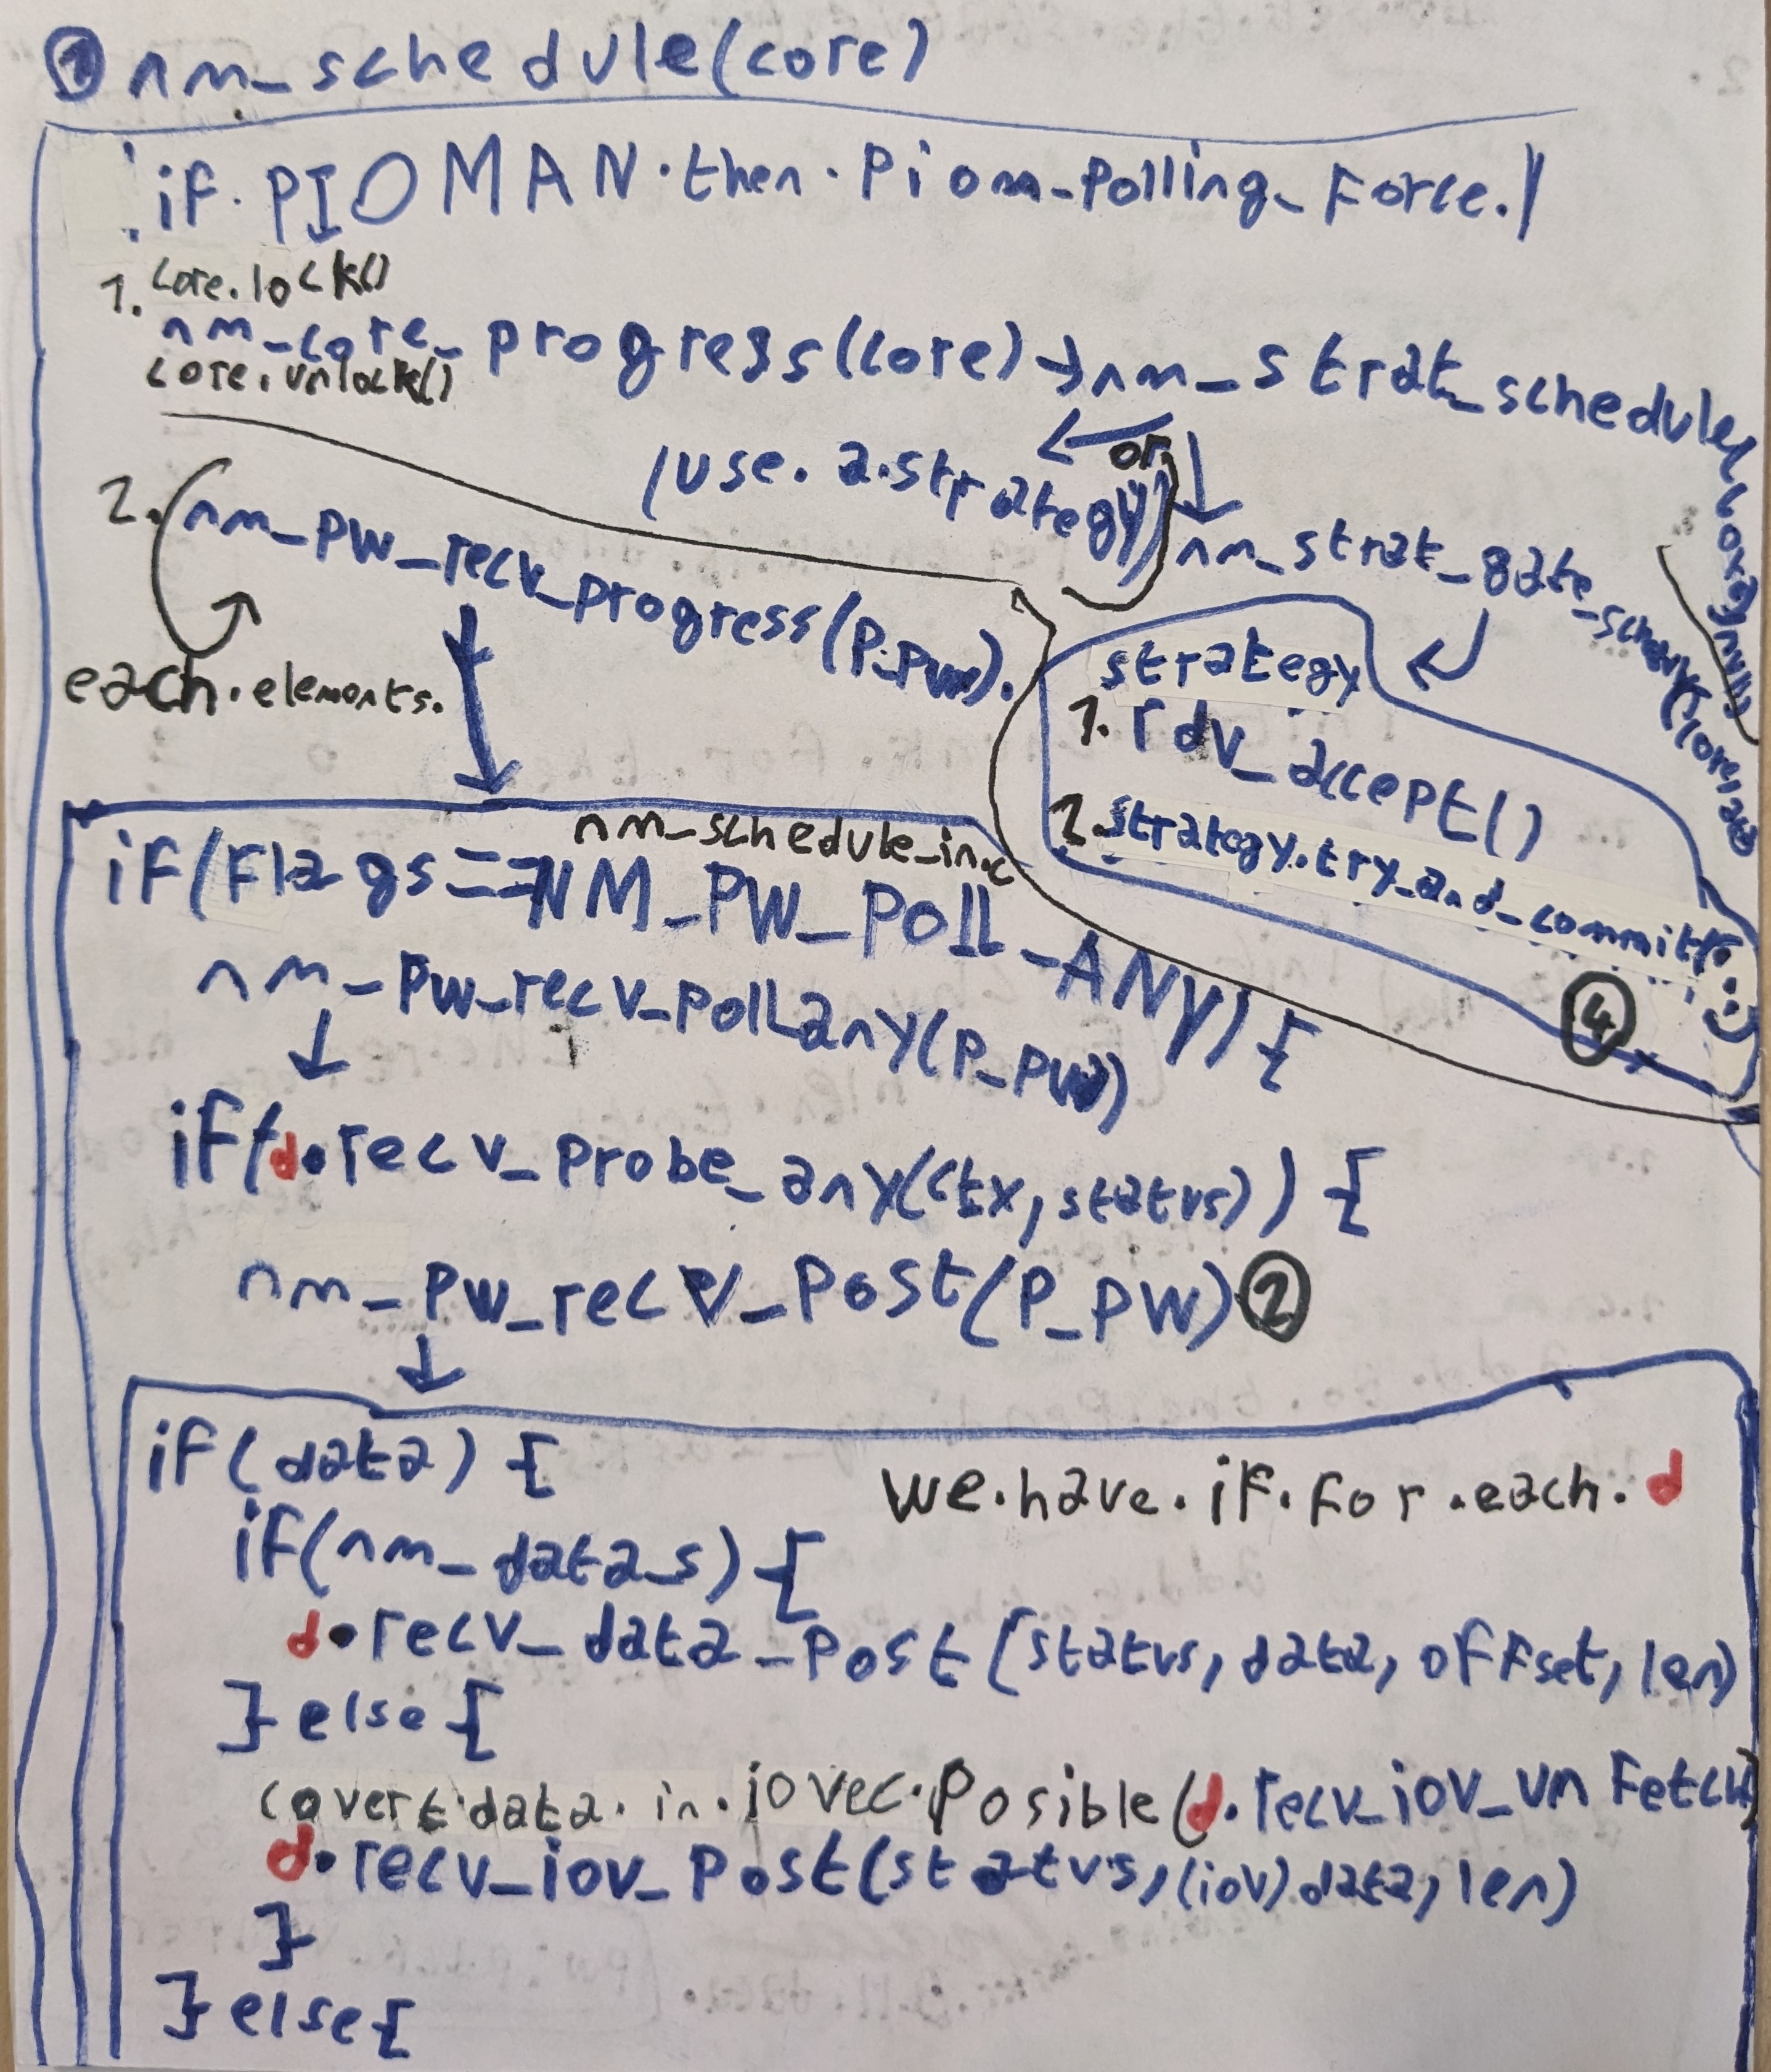 ① nm_schedule(core)
if. PIOMAN.then.Piom_Polling_Force.
1. core.lock()
nm_core_progress(core)→nm_strat_schedule(core,null)
core.unlock()
← or ↓
(use.a.strategy)
nm_strat_gate_schedule(core,
2. nm_PW_recv_progress(P_PW).
each.elements.
strategy
1. rdv_accept()
2. strategy.try_and_commit
④
nm_schedule_in.c
if(Flags==NM_PW_Poll_ANY) {
nm_PW_recv_Poll_any(P_PW)
if(d.recv_Probe_any(ctx, status)) {
nm_PW_recv_Post(P_PW) ②
if(data) {
we.have.if.For.each.d
if(nm_data_s) {
d.recv_data_Post(status, data, offset, len)
} else {
covert data.in.iovec.Posible(d.recv_iov_unFetch)
d.recv_iov_Post(status,(iov)data, len)
}
} else {